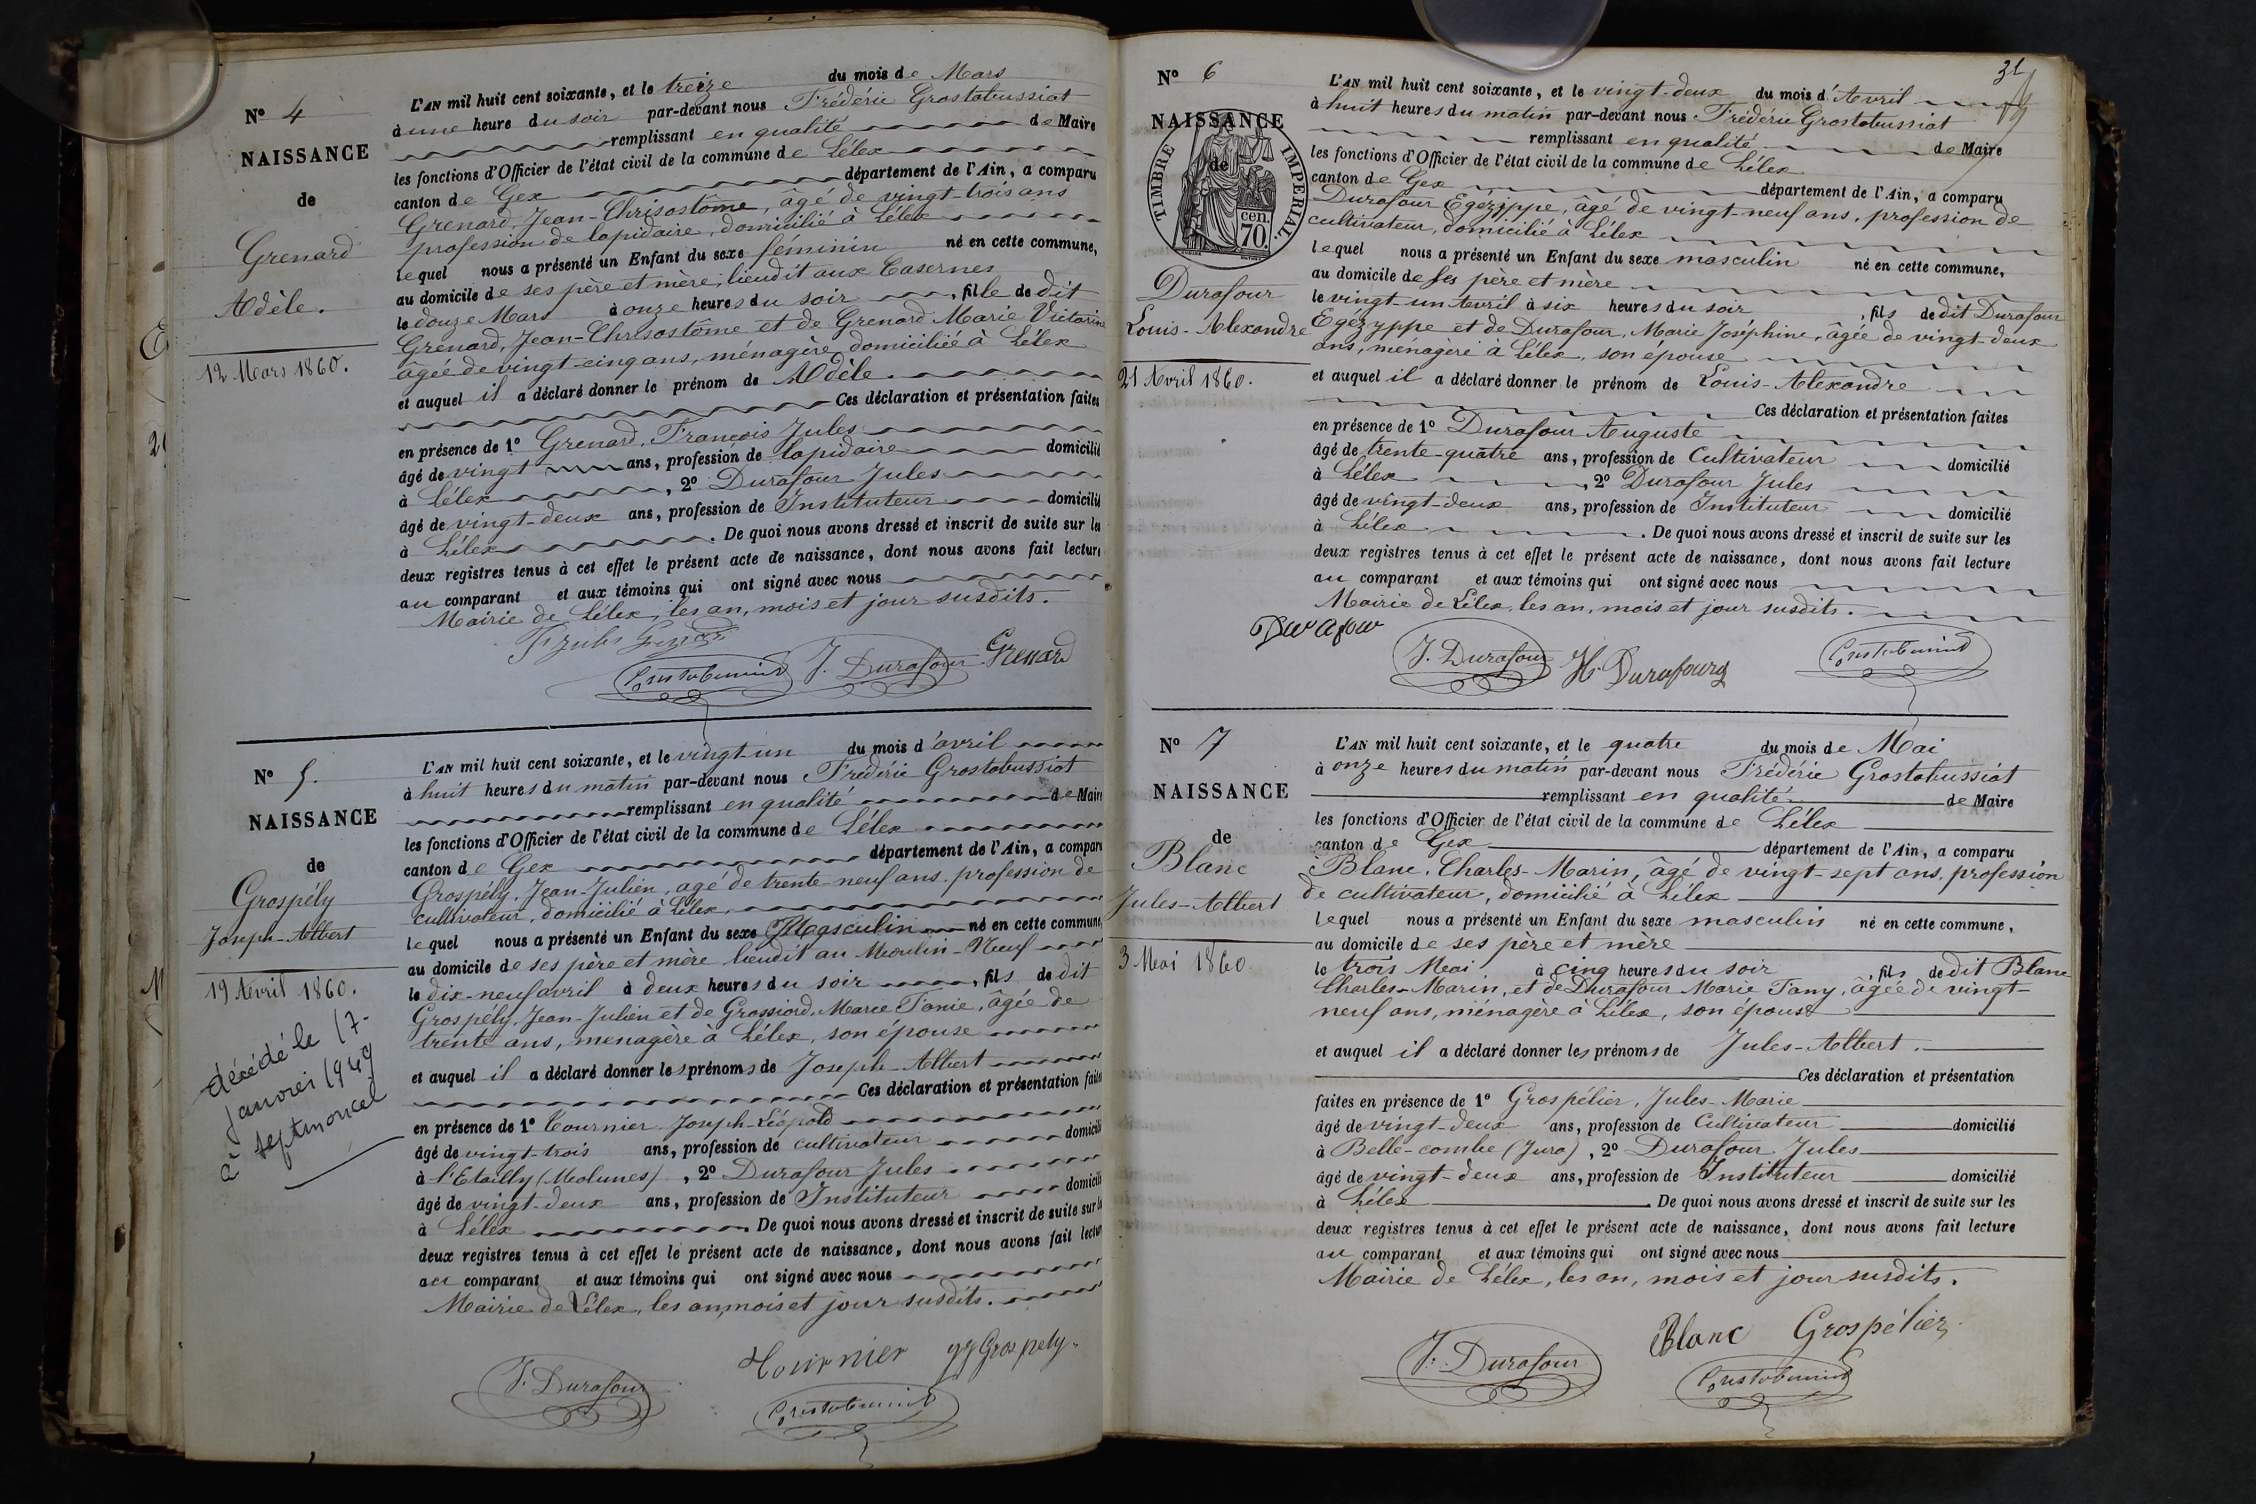 N° 4
NAISSANCE
de
Grenard
Adèle.
12 Mars 1860.
L'AN mil huit cent soixante, et le treize du mois de Mars
à une heure du soir par-devant nous Frédéric Grostabussiat
remplissant en qualité de Maire
les fonctions d'Officier de l'état civil de la commune de Lélex
canton de Gex département de l'Ain, a comparu
Grenard, Jean-Chrisostôme, âgé de vingt-trois ans
profession de lapidaire, domicilié à Lélex
lequel nous a présenté un Enfant du sexe féminin né en cette commune,
au domicile de ses père et mère, lieudit aux Casernes
le douze Mars à onze heures du soir, fille de dit
Grenard, Jean-Chrisostôme et de Grenard Marie Victorine
agée de vingt-cinq ans, ménagère domiciliée à Lélex
et auquel il a déclaré donner le prénom de Adèle.
Ces déclaration et présentation faites
en présence de 1° Grenard, François Jules
âgé de vingt ans, profession de lapidaire domicilié
à Lélex, 2° Durafour Jules
âgé de vingt-deux ans, profession de Instituteur domicilié
à Lélex. De quoi nous avons dressé et inscrit de suite sur les
deux registres tenus à cet effet le présent acte de naissance, dont nous avons fait lecture
au comparant et aux témoins qui ont signé avec nous
Mairie de Lélex, les an, mois et jour susdits.
J. Durafour Grenard
N° 5.
NAISSANCE
de
Grospély
Joseph-Albert
19 Avril 1860.
décédé le 17
janvier 1949
à septmoncel
L'AN mil huit cent soixante, et le vingt-un du mois d'avril
à huit heures du matin par-devant nous Frédéric Grostabussiat
remplissant en qualité de Maire
les fonctions d'Officier de l'état civil de la commune de Lélex
canton de Gex département de l'Ain, a comparu
Grospély, Jean-Julien, agé de trente-neuf ans. profession de
cultivateur, domicilié à Lélex,
lequel nous a présenté un Enfant du sexe Masculin né en cette commune,
au domicile de ses père et mère lieudit au Moulin-Neuf
le dix-neuf avril à deux heures du soir, fils de dit
Grospély, Jean-Julien et de Grossiord, Marie Tonie, âgée de
trente ans, ménagère à Lélex, son épouse
et auquel il a déclaré donner les prénoms de Joseph-Albert
Ces déclaration et présentation faites
en présence de 1° Tournier Joseph-Léopold
âgé de vingt-trois ans, profession de cultivateur domicilié
à l'Etailly (Molunes), 2° Durafour Jules
âgé de vingt-deux ans, profession de Instituteur domicilié
à Lélex. De quoi nous avons dressé et inscrit de suite sur les
deux registres tenus à cet effet le présent acte de naissance, dont nous avons fait lecture
au comparant et aux témoins qui ont signé avec nous
Mairie de Lélex, les an, mois et jour susdits.
Tournier JJ Grospely.
J. Durafour
31
N° 6
NAISSANCE
de
TIMBRE IMPERIAL.
70. cen.
Durafour
Louis-Alexandre
21 Avril 1860.
L'AN mil huit cent soixante, et le vingt-deux du mois d'Avril
à huit heures du matin par-devant nous Frédéric Grostabussiat
remplissant en qualité de Maire
les fonctions d'Officier de l'état civil de la commune de Lélex
canton de Gex département de l'Ain, a comparu
Durafour Egézippe, âgé de vingt-neuf ans, profession de
cultivateur, domicilié à Lélex
lequel nous a présenté un Enfant du sexe masculin né en cette commune,
au domicile de ses père et mère
le vingt-un Avril à six heures du soir, fils de dit Durafour
Egézyppe et de Durafour, Marie Joséphine, âgée de vingt-deux
ans, ménagère à Lélex, son épouse
et auquel il a déclaré donner le prénom de Louis-Alexandre
Ces déclaration et présentation faites
en présence de 1° Durafour Auguste
âgé de trente-quatre ans, profession de Cultivateur domicilié
à Lélex, 2° Durafour Jules
âgé de vingt-deux ans, profession de Instituteur domicilié
à Lélex. De quoi nous avons dressé et inscrit de suite sur les
deux registres tenus à cet effet le présent acte de naissance, dont nous avons fait lecture
au comparant et aux témoins qui ont signé avec nous
Mairie de Lélex, les an, mois et jour susdits.
Durafour
J. Durafour H. Durafourg
N° 7
NAISSANCE
de
Blanc
Jules-Albert
3 Mai 1860
L'AN mil huit cent soixante, et le quatre du mois de Mai
à onze heures du matin par-devant nous Frédéric Grostabussiat
remplissant en qualité de Maire
les fonctions d'Officier de l'état civil de la commune de Lélex
canton de Gex département de l'Ain, a comparu
Blanc, Charles-Marin, âgé de vingt-sept ans, profession
de cultivateur, domicilié à Lélex
lequel nous a présenté un Enfant du sexe masculin né en cette commune,
au domicile de ses père et mère
le trois Mai à cinq heures du soir, fils de dit Blanc
Charles-Marin, et de Durafour Marie Fany, âgée de vingt-
neuf ans, ménagère à Lélex, son épouse
et auquel il a déclaré donner les prénoms de Jules-Albert.
Ces déclaration et présentation
faites en présence de 1° Grospélier, Jules-Marie
âgé de vingt-deux ans, profession de Cultivateur domicilié
à Belle-combe (Jura), 2° Durafour Jules
âgé de vingt-deux ans, profession de Instituteur domicilié
à Lélex. De quoi nous avons dressé et inscrit de suite sur les
deux registres tenus à cet effet le présent acte de naissance, dont nous avons fait lecture
au comparant et aux témoins qui ont signé avec nous
Mairie de Lélex, les an, mois et jour susdits.
Blanc Grospélier
J. Durafour